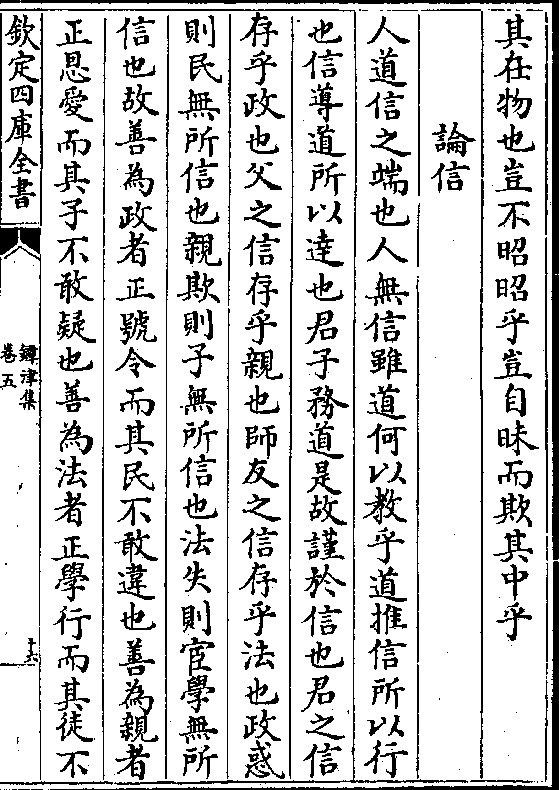 其在物也豈不昭昭乎豈自昧而欺其中乎
論信
人道信之端也人無信雖道何以教乎道推信所以行
也信導道所以達也君子務道是故謹於信也君之信
存乎政也父之信存乎親也師友之信存乎法也政惑
則民無所信也親欺則子無所信也法失則宦學無所
信也故善為政者正號令而其民不敢違也善為親者
正恩愛而其子不敢疑也善為法者正學行而其徒不
欽定四庫全書
鐔津集
卷五
十六